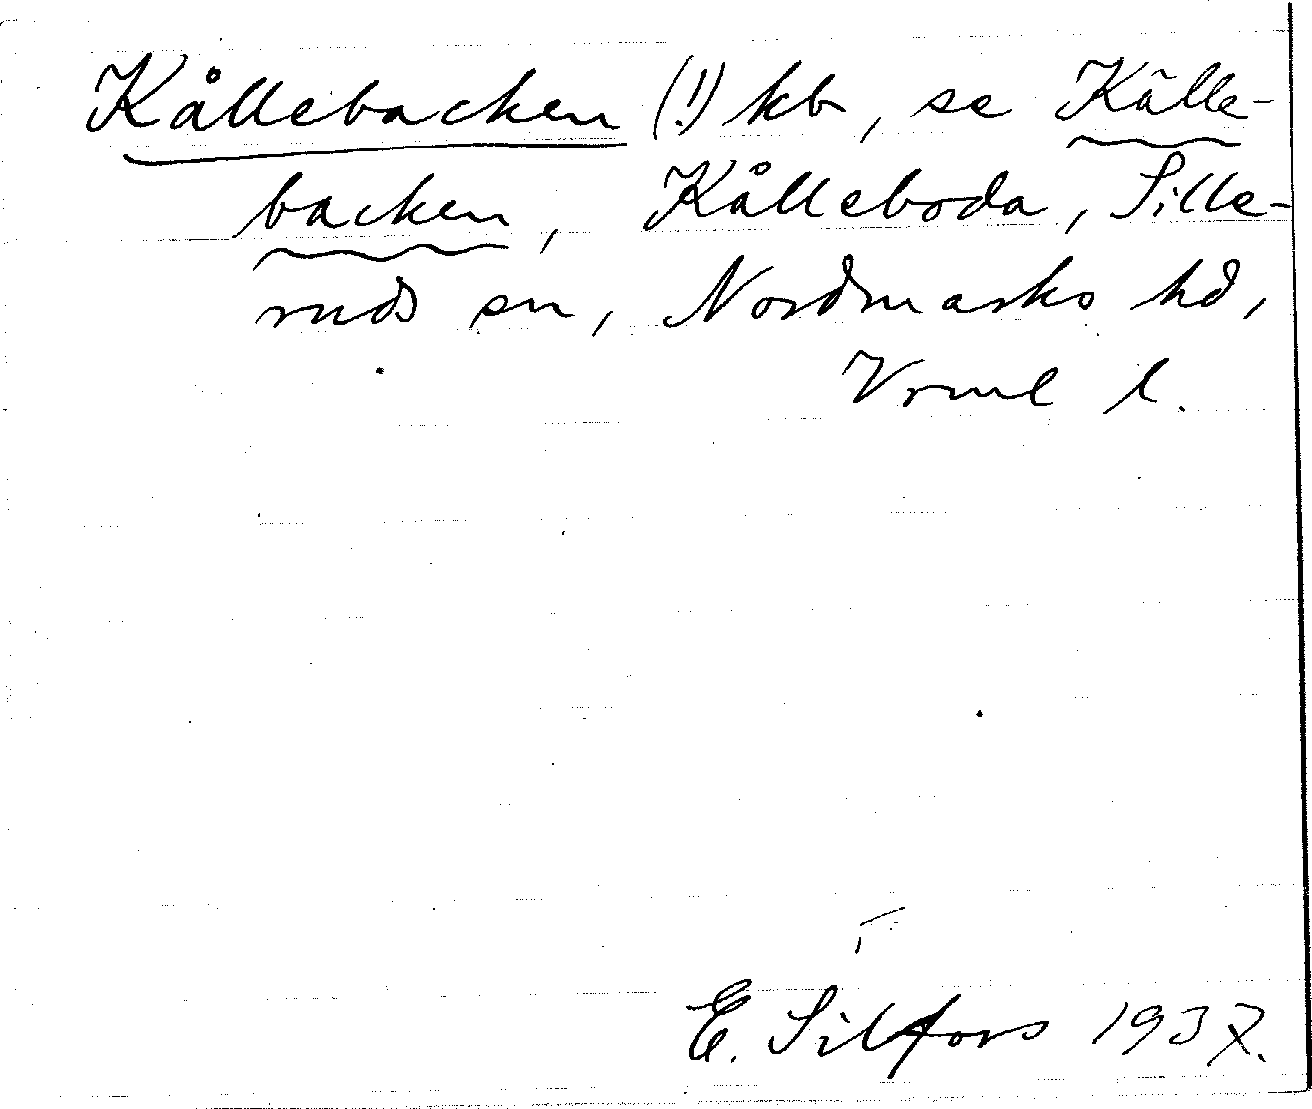 Kållebacken (!) kb, se Källe-
backen, Kålleboda, Sille-
ruds sn, Nordmarks hd,
Vrml l.
E. Silfors 1937.